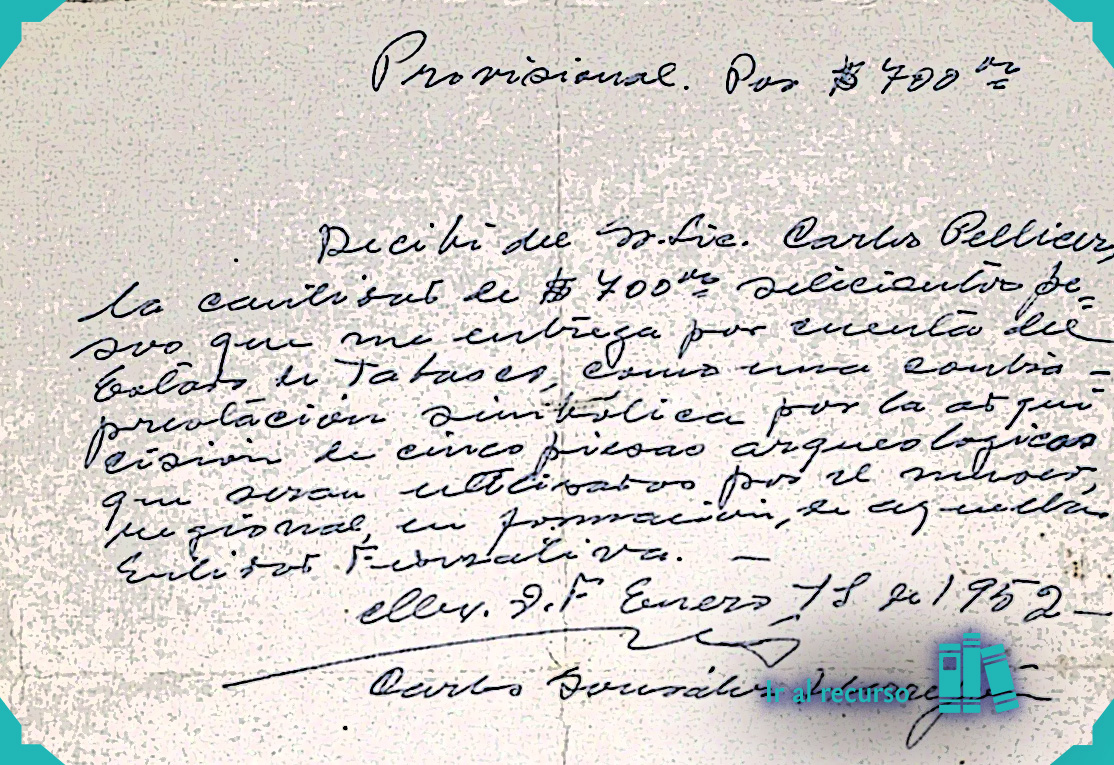 Provisional. Por $ 700 00
Recibi del Sr. Lic. Carlos Pellicer,
la cantidad de $ 700 00 setecientos pe=
sos que me entrega por cuenta del
Estado de Tabasco, como una contra=
prestación simbólica por la adqui
cision de cinco piesas arqueologicas
que seran utilisadas por el museo,
regional, en formación, de aquella
Entidad Federativa. —
Mex. D.F Enero 18 de 1952—
Carlos González
Ir al recurso